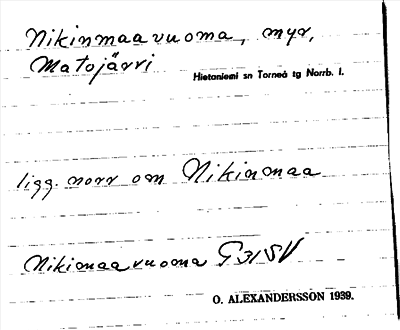 Nikinmaavuoma, myr,
Matojärvi
Hietaniemi sn Torneå tg Norrb. l.
ligg. norr om Nikinmaa
Nikimaavuoma G31SV
O. ALEXANDERSSON 1939.